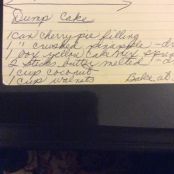 Dump Cake
1 can cherry pie filling
1 " crushed pineapple - dr
1 box yellow cake mix spr
2 sticks butter melted - d
1 cup coconut
1 cup walnuts
Bake at